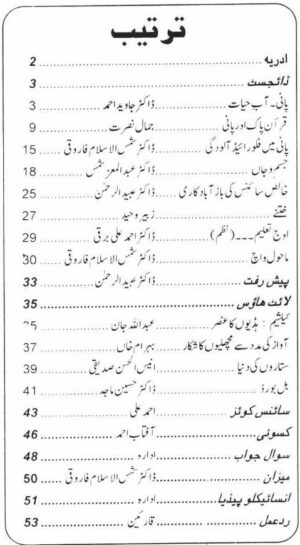 ترتیب
اداریہ ........ 2
ڈائجسٹ ........ 3
پانی۔ آب حیات ........ ڈاکٹر جاوید احمد ........ 3
قرآن پاک اور پانی ........ جمال نصرت ........ 9
پانی میں فلورائیڈ آلودگی ........ ڈاکٹر شمس الاسلام فاروقی ........ 15
جسم و جاں ........ ڈاکٹر عبدالمعز شمس ........ 18
خالص سائنس کی باز آبادکاری ........ ڈاکٹر عبیدالرحمٰن ........ 25
ختنے ........ زبیر وحید ........ 27
اوج تعلیم ۔۔۔ (نظم) ........ ڈاکٹر احمد علی برقی ........ 29
ماحول واچ ........ ڈاکٹر شمس الاسلام فاروقی ........ 30
پیش رفت ........ ڈاکٹر عبیدالرحمٰن ........ 33
لائٹ ھاؤس ........ 35
کیلشیم : ہڈیوں کا عنصر ........ عبداللہ جان ........ 35
آواز کی مدد سے مچھلیوں کا شکار ........ بہرام خاں ........ 37
ستاروں کی دنیا ........ انیس الحسن صدیقی ........ 39
بل بورڈ ........ ڈاکٹر حسین ماجد ........ 41
سائنس کوئز ........ احمد علی ........ 43
کسوٹی ........ آفتاب احمد ........ 46
سوال جواب ........ ادارہ ........ 48
میزان ........ ڈاکٹر شمس الاسلام فاروقی ........ 50
انسائیکلوپیڈیا ........ ادارہ ........ 51
ردعمل ........ قارئین ........ 53